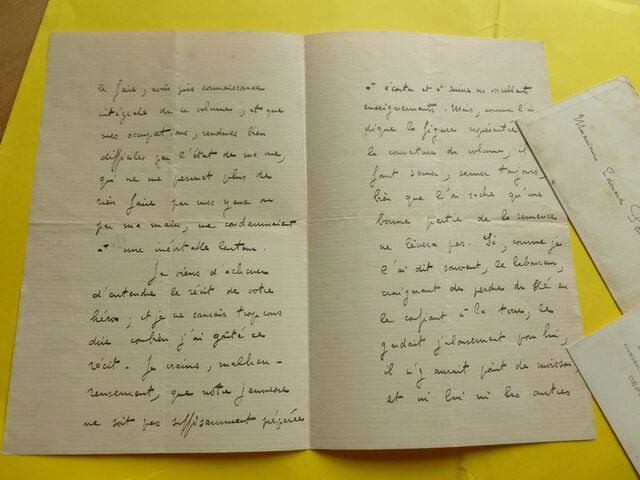 le faire, avoir pris connaissance
intégrale de ce volume, et que
mes occupations, rendues bien
difficiles par l'état de ma vue,
qui ne me permet plus de
rien faire par mes yeux ou
par ma main, me condamnaient
à une inévitable lenteur.
Je viens d'achever
d'entendre le récit de votre
héros ; et je ne saurais trop vous
dire combien j'ai goûté ce
récit. Je crains, malheu-
reusement, que notre jeunesse
ne soit pas suffisamment préparée
à écouter et à suivre ces excellents
enseignements. Mais, comme l'in
dique la figure représentée
la couverture du volume, il
faut semer, semer toujours
bien que l'on sache qu'une
bonne partie de la semence
ne lèvera pas. Si, comme je
l'ai dit souvent, le laboureur,
craignant de perdre du blé en
le confiant à la terre, le
gardait jalousement pour lui,
il n'y aurait point de moisson,
et ni lui ni les autres
Madame Edouard